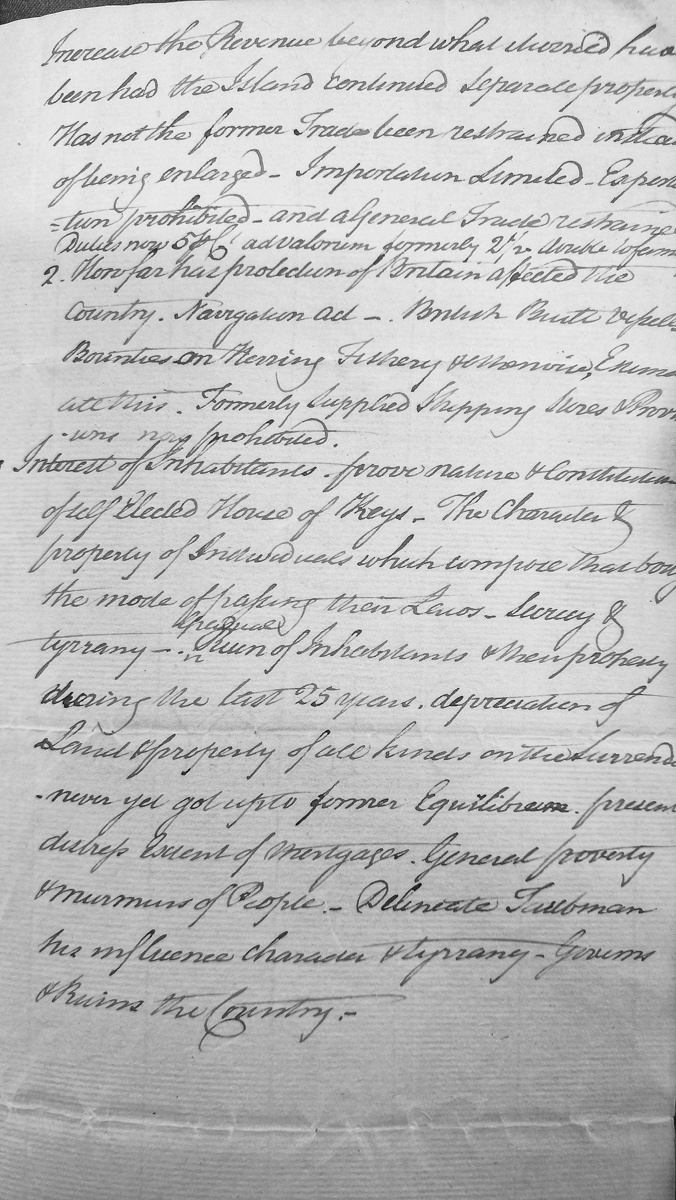 Increase the Revenue beyond what it would have
been had the Island continued separate property
Has not the former Trade been restrained instead
of being enlarged - Importation Limited - Exporta
=tion prohibited - and a General Trade restraine
Duties now 5 & 6 advalorum formerly 2½ double
2. How far has protection of Britain affected the
Country. Navigation act - . British Built Vessels
Bounties on Herring Fishery & otherwise, Enume
ate this. Formerly supplied Shipping Stores & Provi
-ions now prohibited.
Interest of Inhabitants - prove nature & Constitution
of self Elected House of Keys - The Character &
property of Individuals which compose that body
the mode of passing their Laws - Secrecy &
gradual
tyranny - . Ruin of Inhabitants & their property
during the last 25 years. depreciation of
Land & property of all kinds on the Surrende
- never yet got up to former Equilibrem. present
distress Extent of Mortgages. General poverty
& murmurs of People - Delineate Taubman
his influence character & tyranny - Governs
& Ruins the Country. -